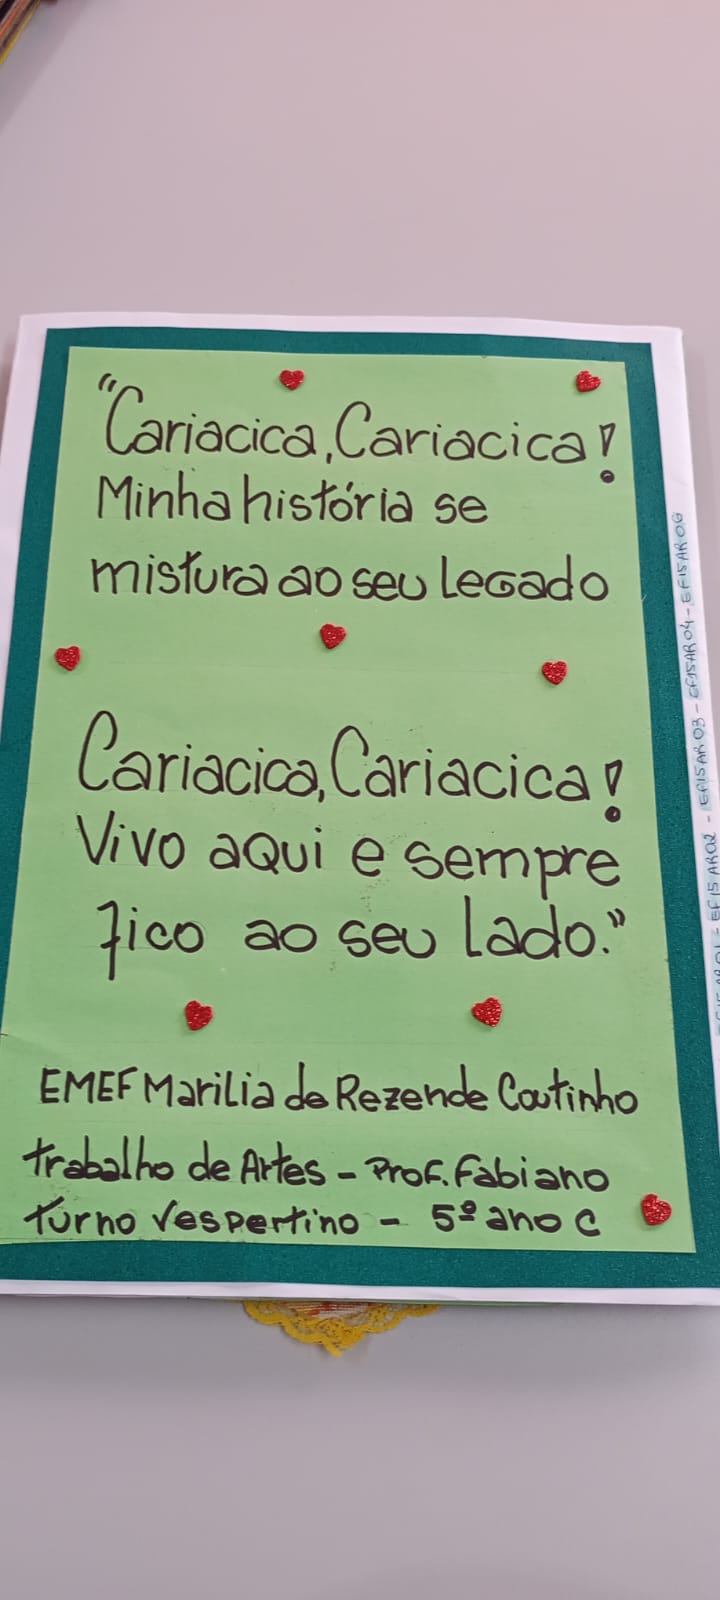 "Cariacica, Cariacica!
Minha história se
mistura ao seu legado
Cariacica, Cariacica!
Vivo aqui e sempre
fico ao seu lado."
EMEF Marilia de Rezende Coutinho
trabalho de Artes - Prof. Fabiano
turno vespertino - 5º ano C
EF15AR02 - EF15AR03 - EF15AR04 - EF15AR06